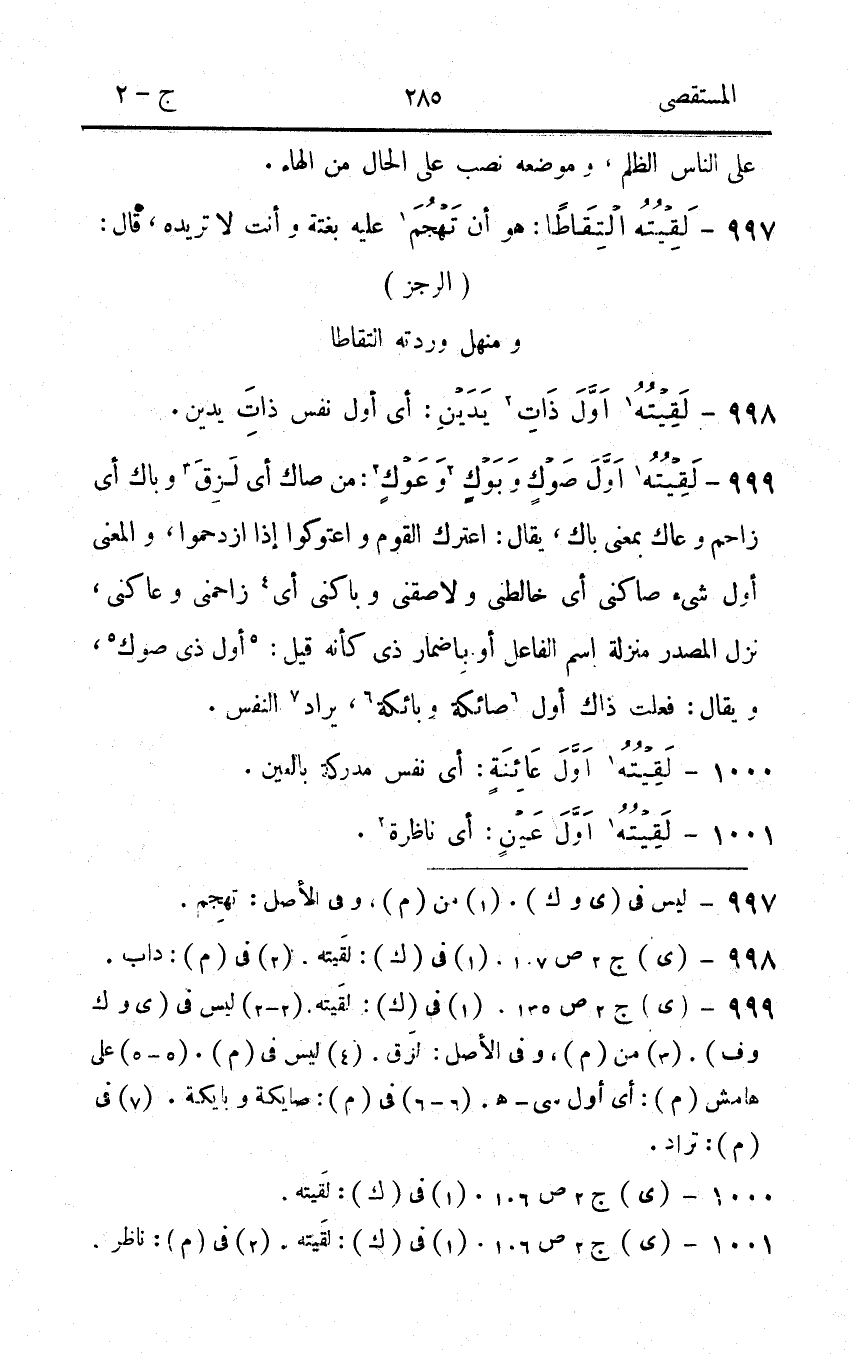 المستقصى ٢٨٥ ج – ٢
على الناس الظلم ، و موضعه نصب على الحال من الهاء .
٩٩٧ – لَقِيْتُهُ الْتِقَاطًا : هو أن تَهْجُمَ١ عليه بغتة و أنت لا تريده ، قال :
( الرجز )
و منهل وردته التقاطا
٩٩٨ – لَقِيْتُهُ١ اَوَّلَ ذَاتِ٢ يَدَيْنِ : أى أول نفس ذاتَ يدين .
٩٩٩ – لَقِيْتُهُ١ اَوَّلَ صَوْكٍ وَ بَوْكٍ ٢وَ عَوْكٍ٢ : من صاك أى لَزِقَ٣ و باك أى
زاحم و عاك بمعنى باك ، يقال : اعترك القوم و اعتوكوا إذا ازدحموا ، و المعنى
أول شىء صاكنى أى خالطنى و لاصقنى و باكنى أى٤ زاحمنى و عاكنى ،
نزل المصدر منزلة اسم الفاعل أو باضمار ذى كأنه قيل : ٥أول ذى صوك٥ ،
و يقال : فعلت ذاك أول ٦صائكة و بائكة٦ ، يراد٧ النفس .
١٠٠٠ – لَقِيْتُهُ١ اَوَّلَ عَائِنَةٍ : أى نفس مدركة بالعين .
١٠٠١ – لَقِيْتُهُ١ اَوَّلَ عَيْنٍ : أى ناظرة٢ .
٩٩٧ – ليس فى ( ى و ك ) . (١) من ( م ) ، و فى الأصل : تهجِم .
٩٩٨ – ( ى ) ج ٢ ص ١٠٧ . (١) فى ( ك ) : لقَيته . (٢) فى ( م ) : داب .
٩٩٩ – ( ى ) ج ٢ ص ١٣٥ . (١) فى ( ك ) : لقَيته . (٢–٢) ليس فى ( ى و ك
و ف ) . (٣) من ( م ) ، و فى الأصل : لزَق . (٤) ليس فى ( م ) . (٥–٥) على
هامش ( م ) : أى أول مى – ه . (٦–٦) فى ( م ) : صايكة و بايكة . (٧) فى
( م ) : تراد .
١٠٠٠ – ( ى ) ج ٢ ص ١٠٦ . (١) فى ( ك ) : لقَيته .
١٠٠١ – ( ى ) ج ٢ ص ١٠٦ . (١) فى ( ك ) : لقَيته . (٢) فى ( م ) : ناظر .